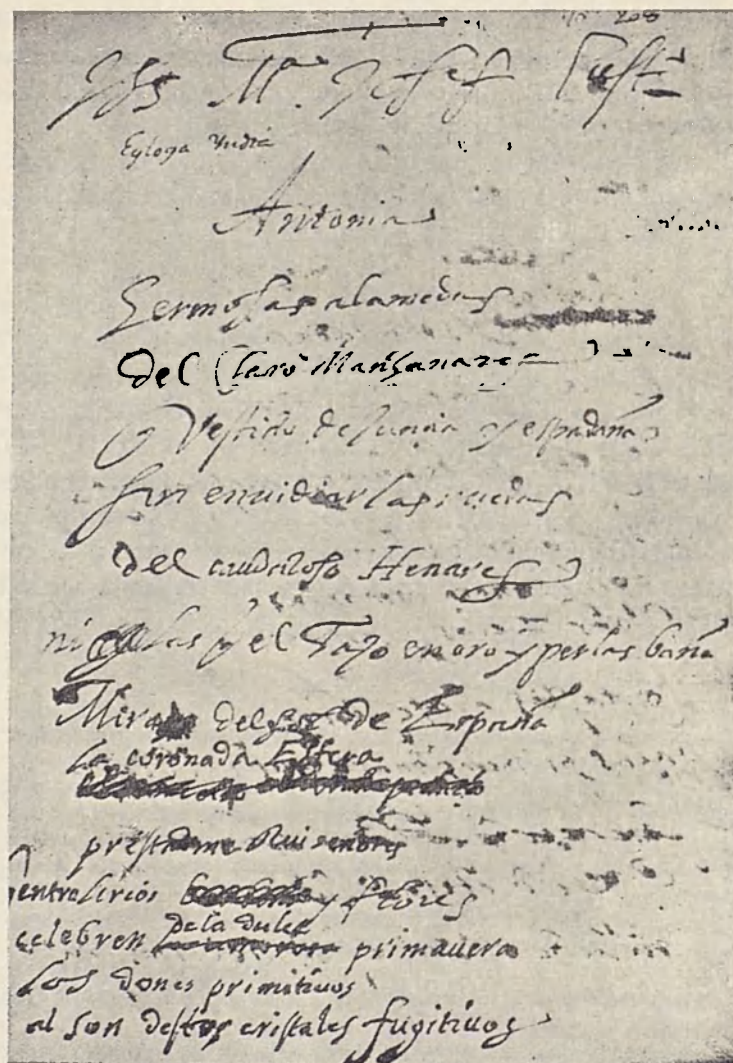 208
Jhs Mª Josef Cust
Egloga
Antonia
hermosas alamedas
del Claro Manzanares
q vestido de juncia y espadaña
sin envidiar las ruedas
del caudaloso Henares
ni las q el Tajo en oro y perlas baña
Mirad del sol de España
la coronada Esfera
prestadme Ruiseñores
entre lirios y flores
celebren de la dulce primauera
los dones primitiuos
al son destos cristales fugitiuos